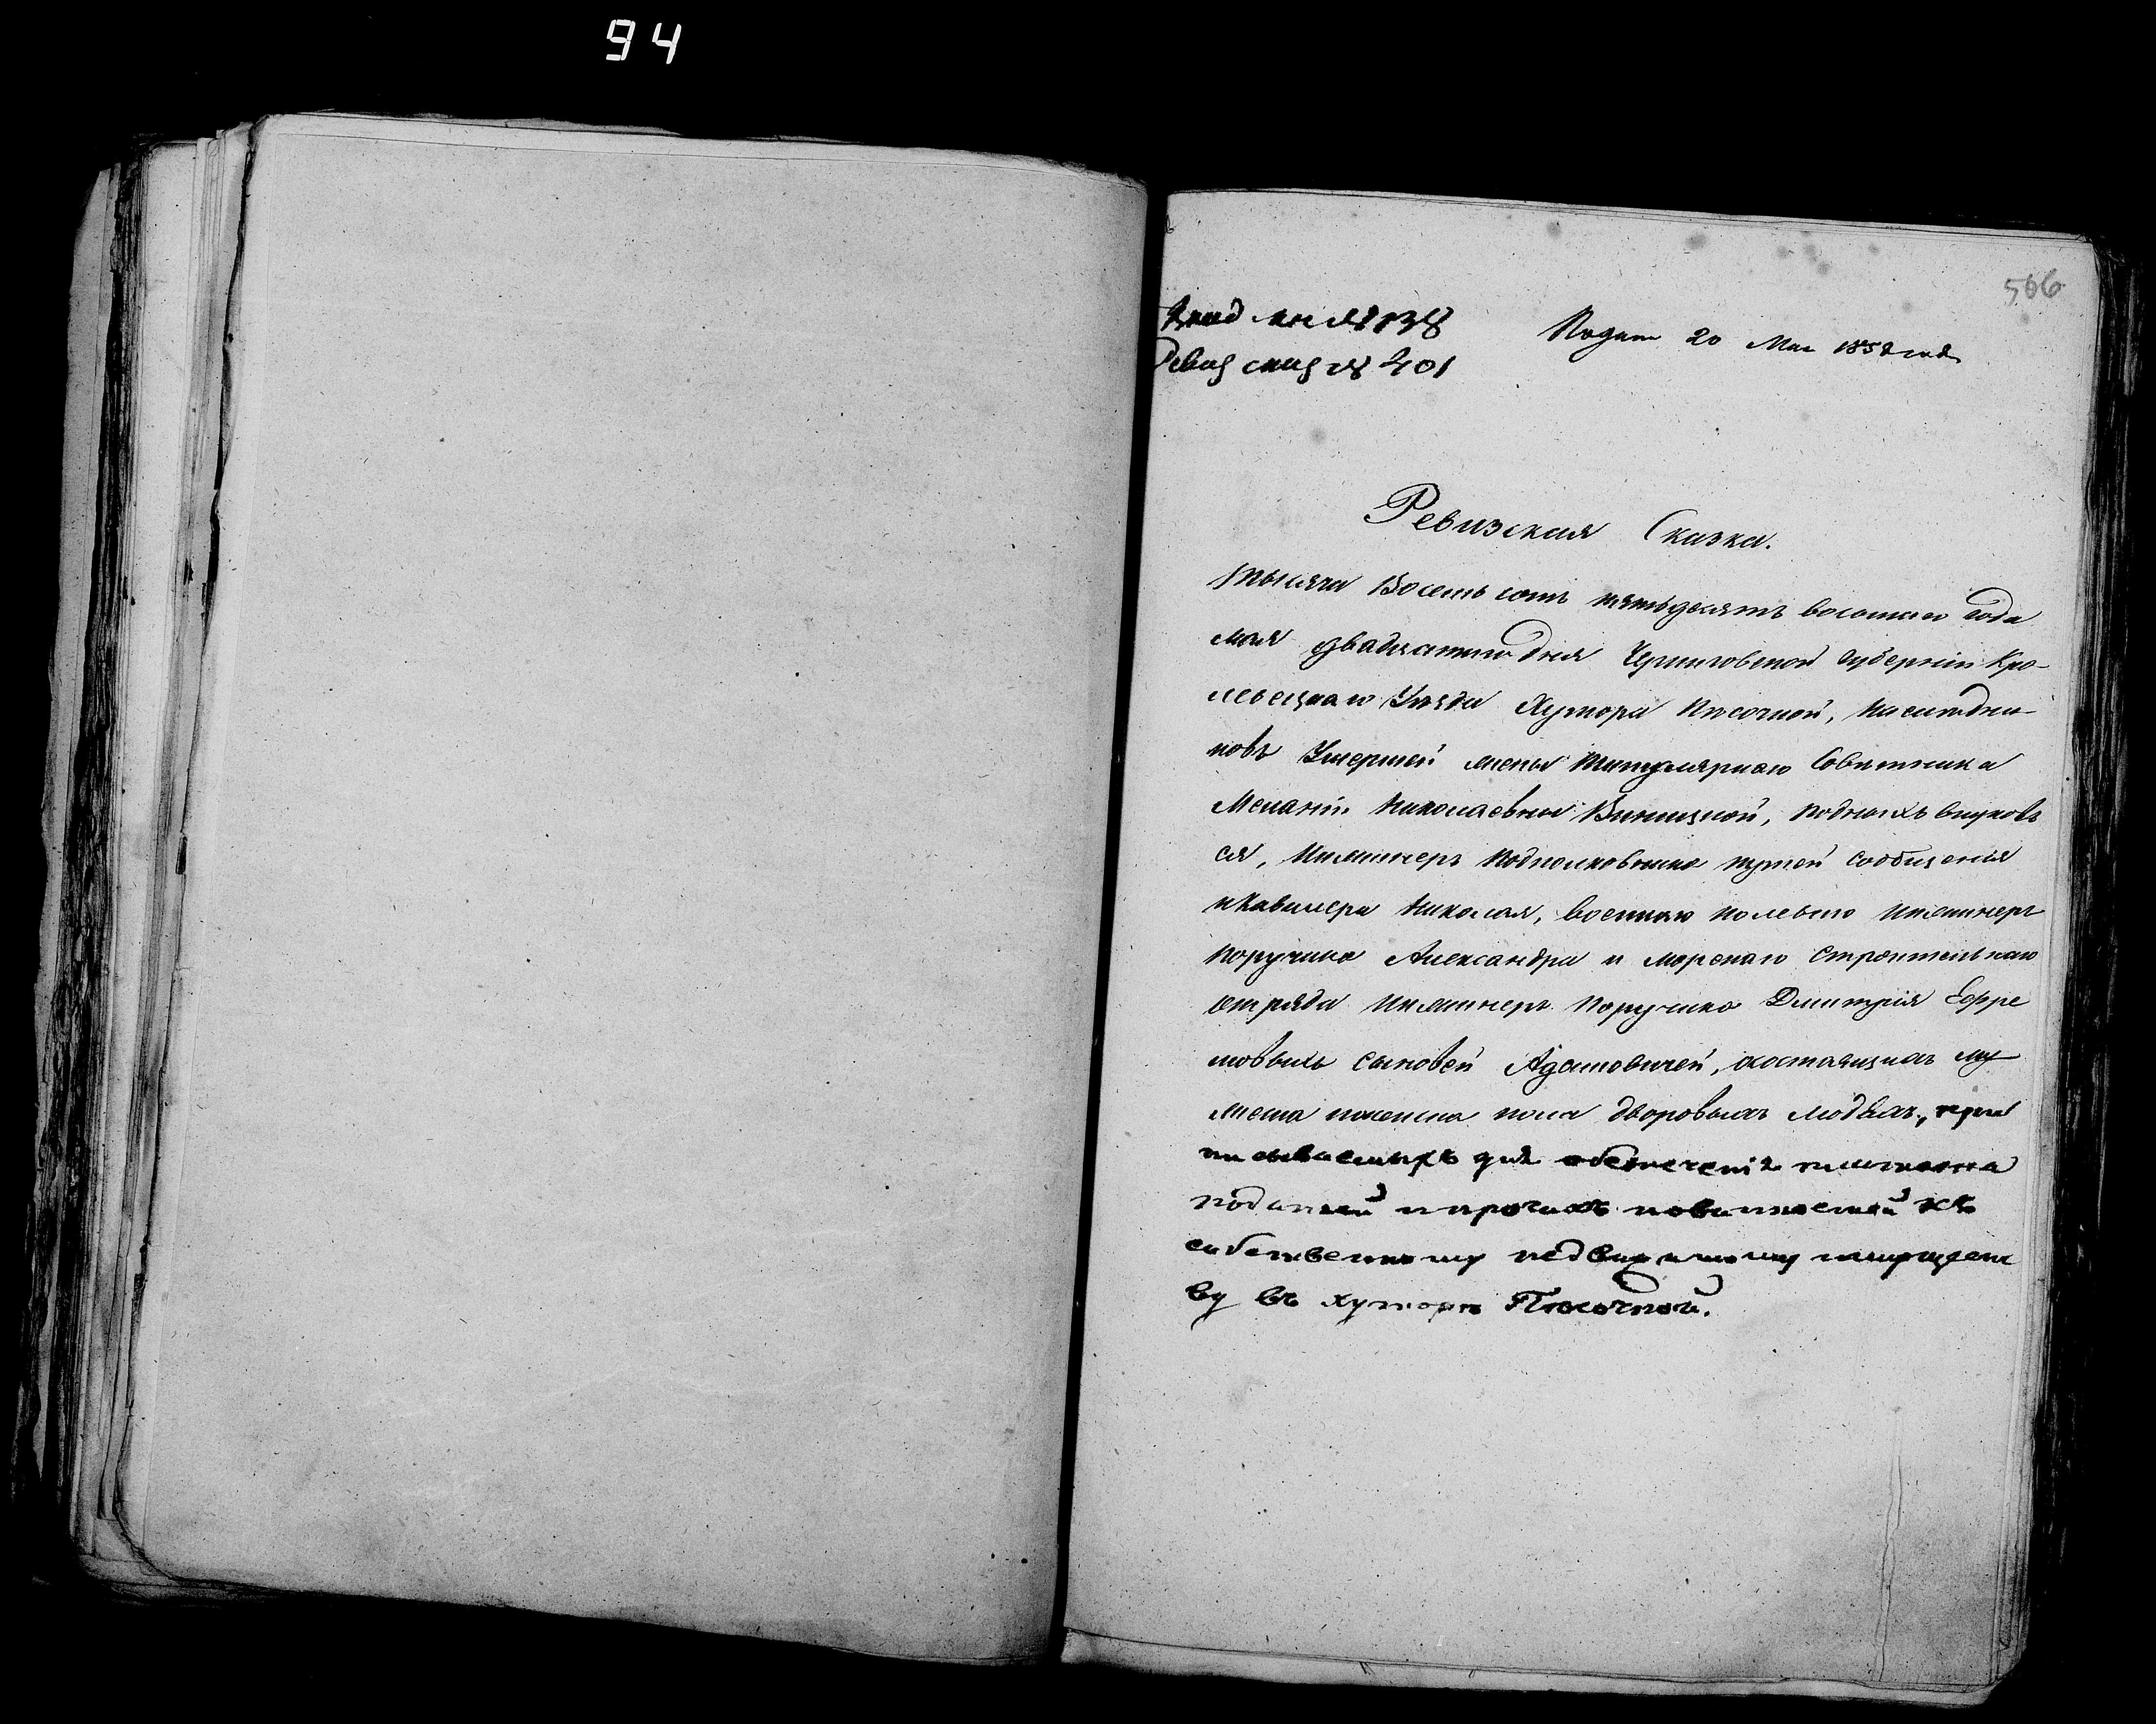 94
566
№ 138
Подан 20 Мая 1858 года
Ревиз сказ № 401
Ревизская Сказка.
Тысяча Восемь сотъ пятьдесятъ восьмаго года
мая двадцатаго дня Черниговской Губерніи Кро-
левецкаго Уѣзда Хутора Пѣсочной, Наслѣдни-
ковъ Умершей жены Титулярнаго Совѣтника
Меланіи Николаевны Виницкой, Родныхъ внуковъ
ея, Инженеръ Подполковника путей сообщенія
и Кавалера Николая, военнаго полеваго Инженеръ
Поручика Александра и морскаго Строительнаго
отряда Инженеръ Поручика Дмитрія Ефре
мовыхъ Сыновей Адамовичей, о состоящихъ му
жеска и женска пола дворовыхъ людяхъ, при
писываемыхъ для обезпеченія платежа
податей и прочихъ повинностей къ
собственному недвижимому имущест
ву въ хуторѣ Пѣсочной.